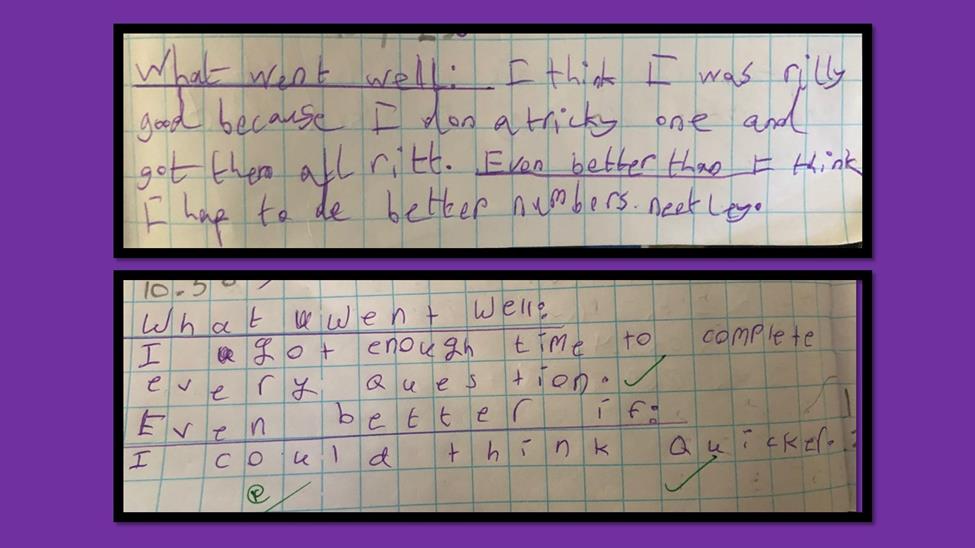 What went well: I think I was rilly
good because I don a tricky one and
got them all ritt. Even better than I think
I haf to de better numbers. neetley.
10.5
What went well:
I got enough time to complete
every question.
Even better if:
I could think Quicker.